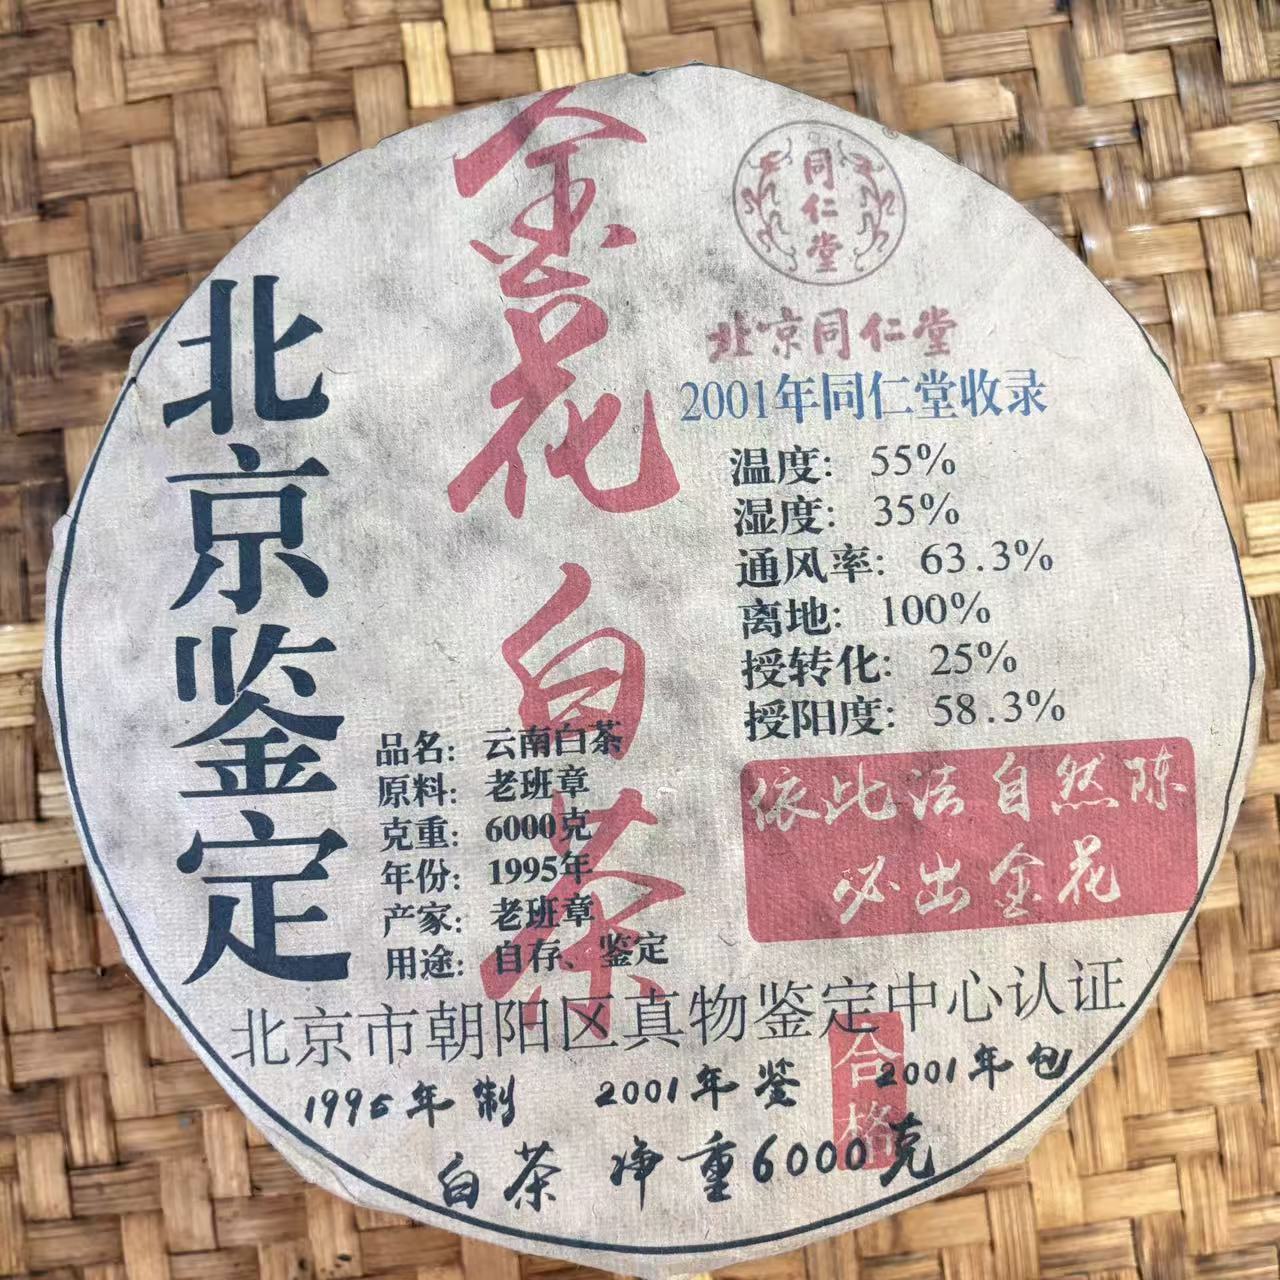 金花白茶
北京鉴定
同仁堂
北京同仁堂
2001年同仁堂收录
温度: 55%
湿度: 35%
通风率: 63.3%
离地: 100%
授转化: 25%
授阳度: 58.3%
依此法自然陈
必出金花
品名: 云南白茶
原料: 老班章
克重: 6000克
年份: 1995年
产家: 老班章
用途: 自存、鉴定
北京市朝阳区真物鉴定中心认证
合格
1995年制 2001年鉴 2001年包
白茶 净重6000克